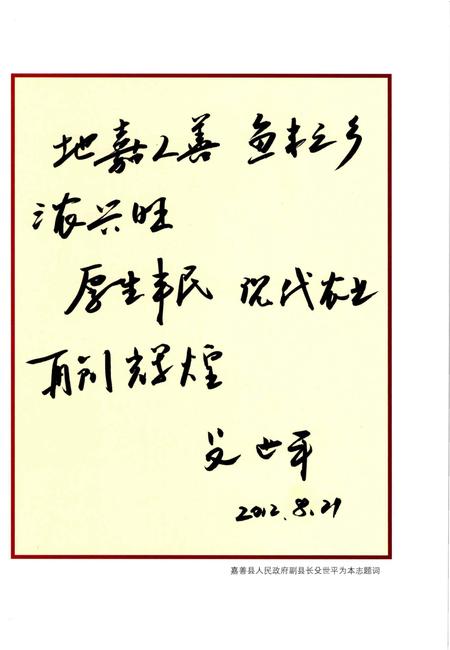 地嘉人善 鱼米之乡
三农兴旺
厚生丰民 现代农业
再创辉煌
殳世平
2012.8.21
嘉善县人民政府副县长殳世平为本志题词